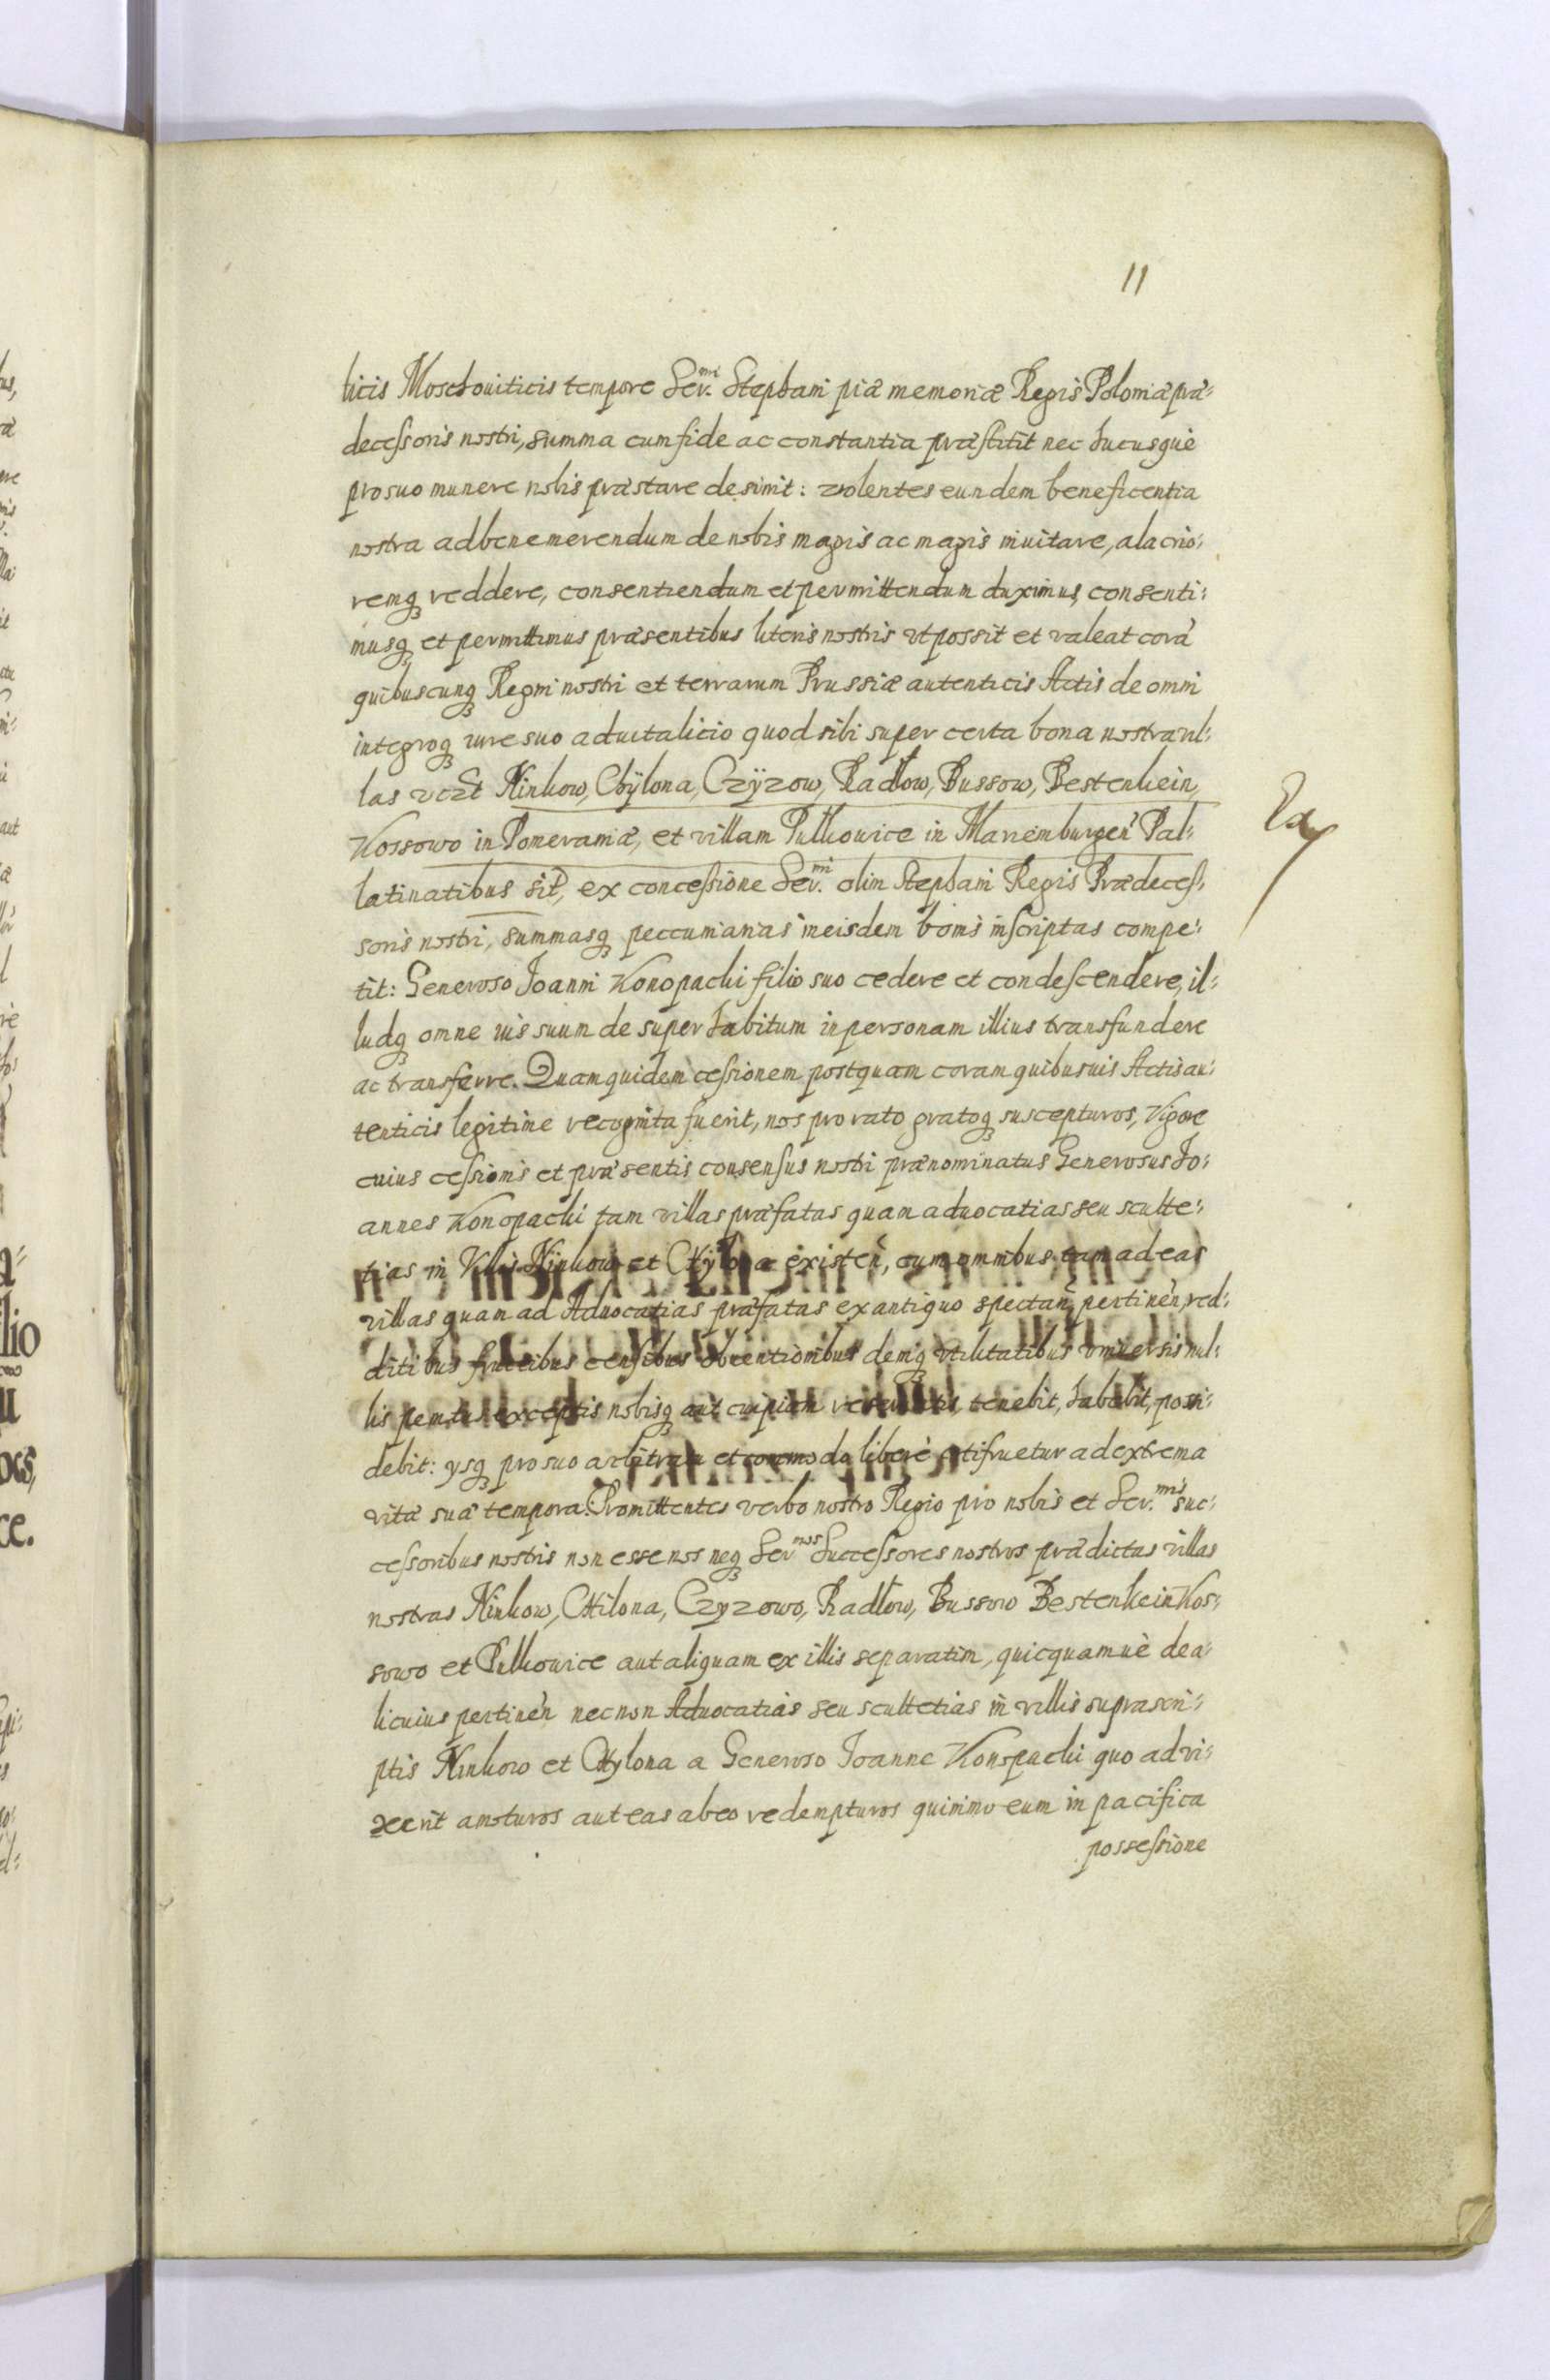 11
licis Moschouiticis tempore Ser.mi Stephani piæ memoriæ Regis Poloniæ præ⸗
decessoris nostri, summa cum fide ac constantia præstitit nec hucusquè
pro suo munere nobis præstare desinit: volentes eundem beneficentia
nostra ad bene merendum de nobis magis ac magis inuitare, alacrio⸗
remq₃ reddere, consentiendum et permittendum duximus, consenti⸗
musq₃ et permittimus præsentibus literis nostris vt possit et valeat corã
quibuscunq₃ Regni nostri et terrarum Prussiæ autenticis Actis de omni
integroq₃ iure suo aduitalicio quod sibi super certa bona nostra vil⸗
las vczt Kinkow, Chÿlona, Czÿzow, Radłow, Bussow, Bestenkein,
Kossowo in Pomeraniæ, et villam Pulkowice in Mariemburgeñ Pal⸗
latinatibus sit, ex concessione Ser.mi olim Stephani Regis Prædeces⸗
soris nostri, summasq₃ peccuniarias in eisdem bonis inscriptas compe⸗
tit: Generoso Joanni Konopachi filio suo cedere et condescendere, il⸗
ludq₃ omne ius suum de super habitum in personam illius transfundere
ac transferre. Quam quidem cessionem postquam coram quibusuis Actis au⸗
tenticis legitime recognita fuerit, nos pro rato gratoq₃ suscepturos, Vigore
cuius cessionis et præsentis consensus nostri prænominatus Generosus Jo⸗
annes Konopachi tam villas præfatas quam aduocatias seu sculte⸗
tias in Villis Kinkow et Chÿlona existeñ, cum omnibus tam ad eas
villas quam ad Aduocatias præfatas ex antiquo spectañ pertineñ, red⸗
ditibus fructibus censibus obuentionibus deniq₃ vtilitatibus vniuersis nul⸗
lis penitus exceptis nobisq₃ aut cuipiam reseruatis, tenebit, habebit, possi⸗
debit: ysq₃ pro suo arbitratu et commodo liberè vtifruetur ad extrema
vitæ suæ tempora. Promittentes verbo nostro Regio pro nobis et Ser.mis suc⸗
cessoribus nostris non esse nos neq₃ Ser.mos Successores nostros prædictas villas
nostras Kinkow, Chilona, Czyzowo, Radłow, Bussow Bestenkein Kos⸗
sowo et Pulkowice aut aliquam ex illis separatim, quicquamuè de a⸗
licuius pertineñ necnon Aduocatias seu scultetias in villis suprascri⸗
ptis Kinkow et Chylona a Generoso Joanne Konopachi quo ad vi⸗
xerit amoturos aut eas ab eo redempturos quinimo eum in pacifica
possessione